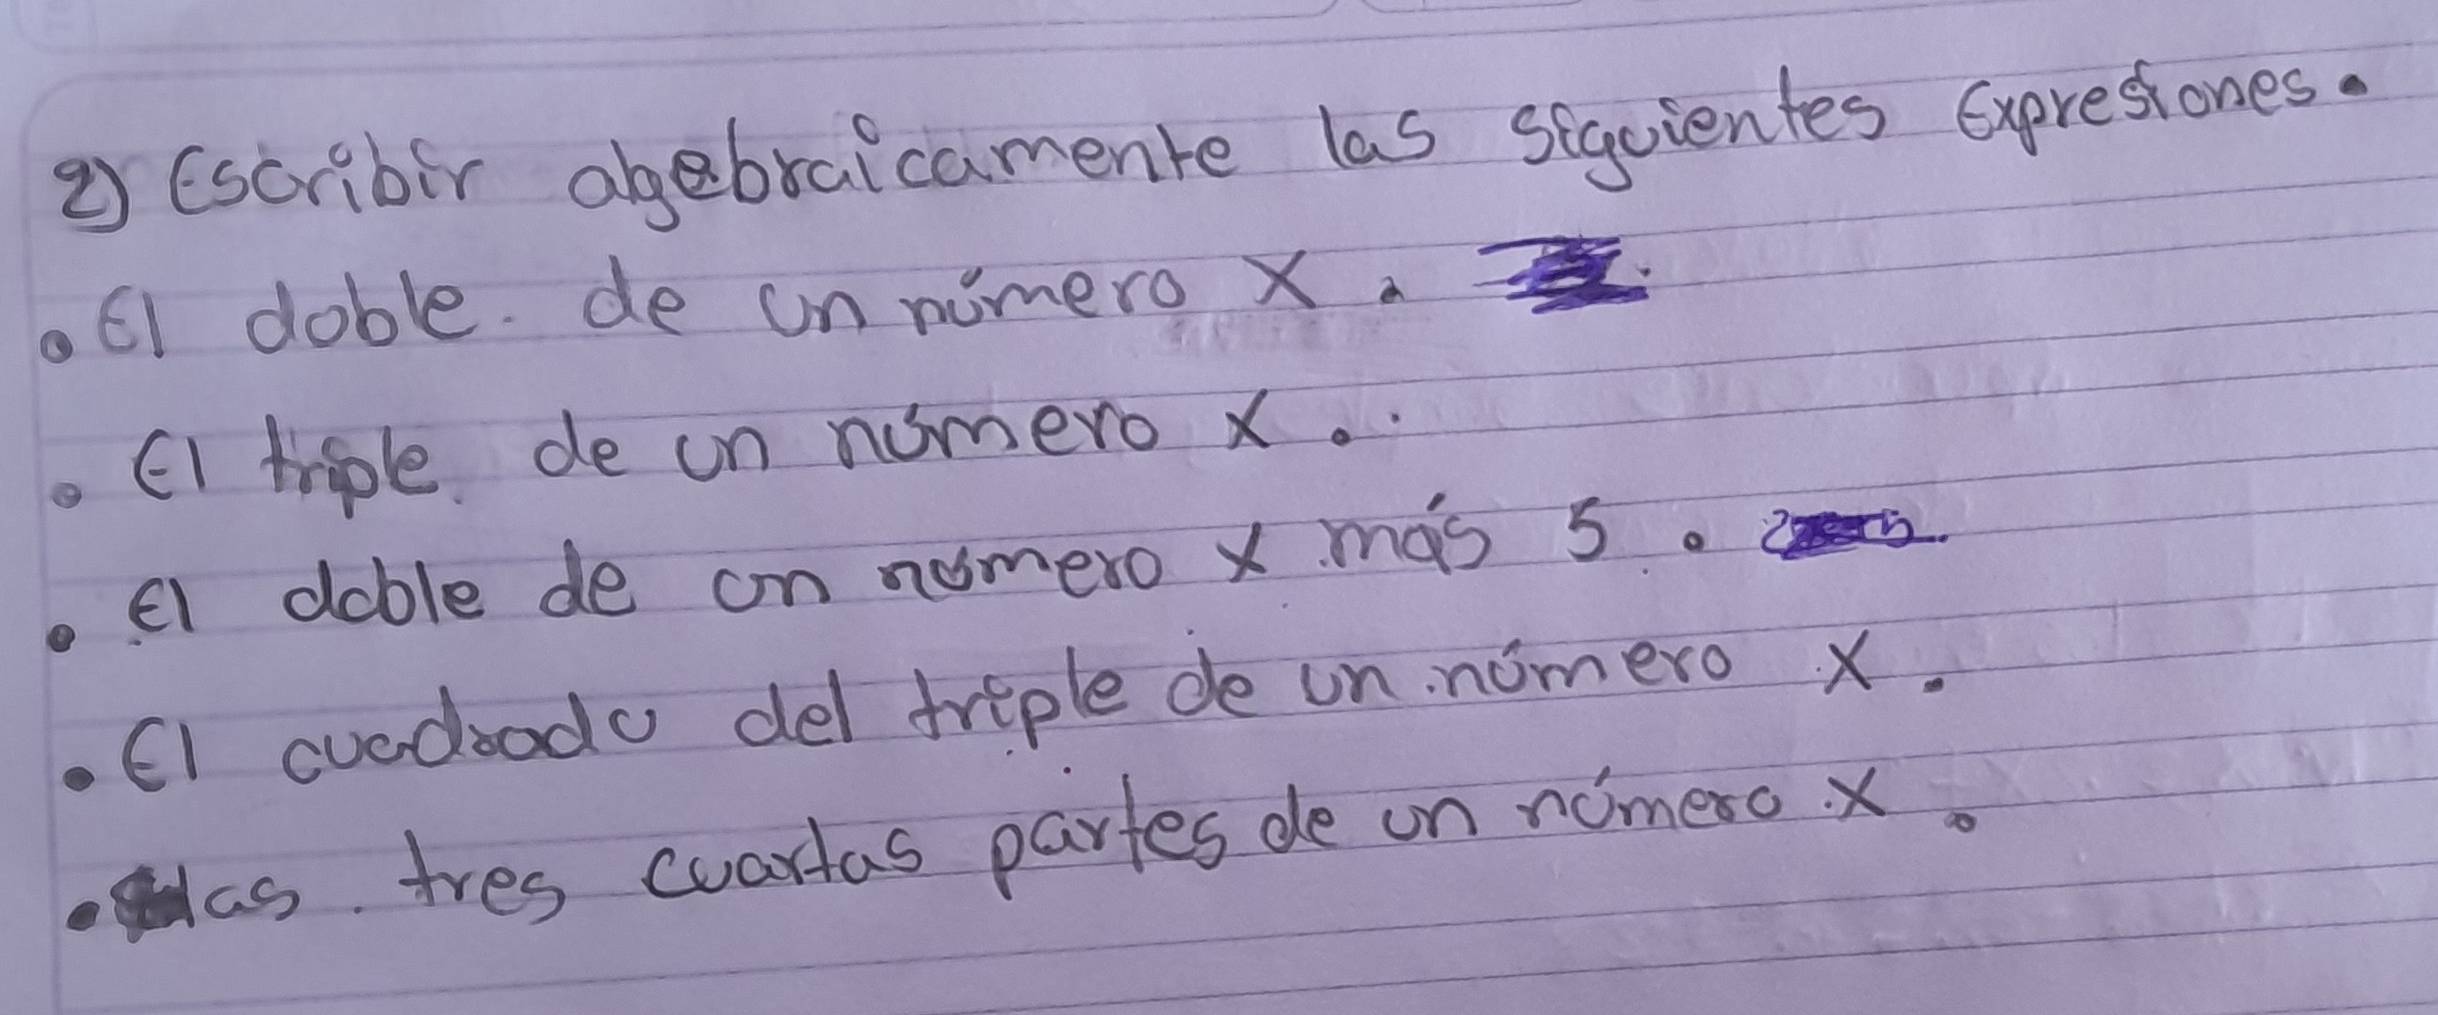 2) Escribir algebraicamente las siguientes expresiones.
• El doble de un número X.
• El triple de un número x.
• El doble de un número x más 5.
• El cuadrado del triple de un número x.
• las tres cuartas partes de un número x.